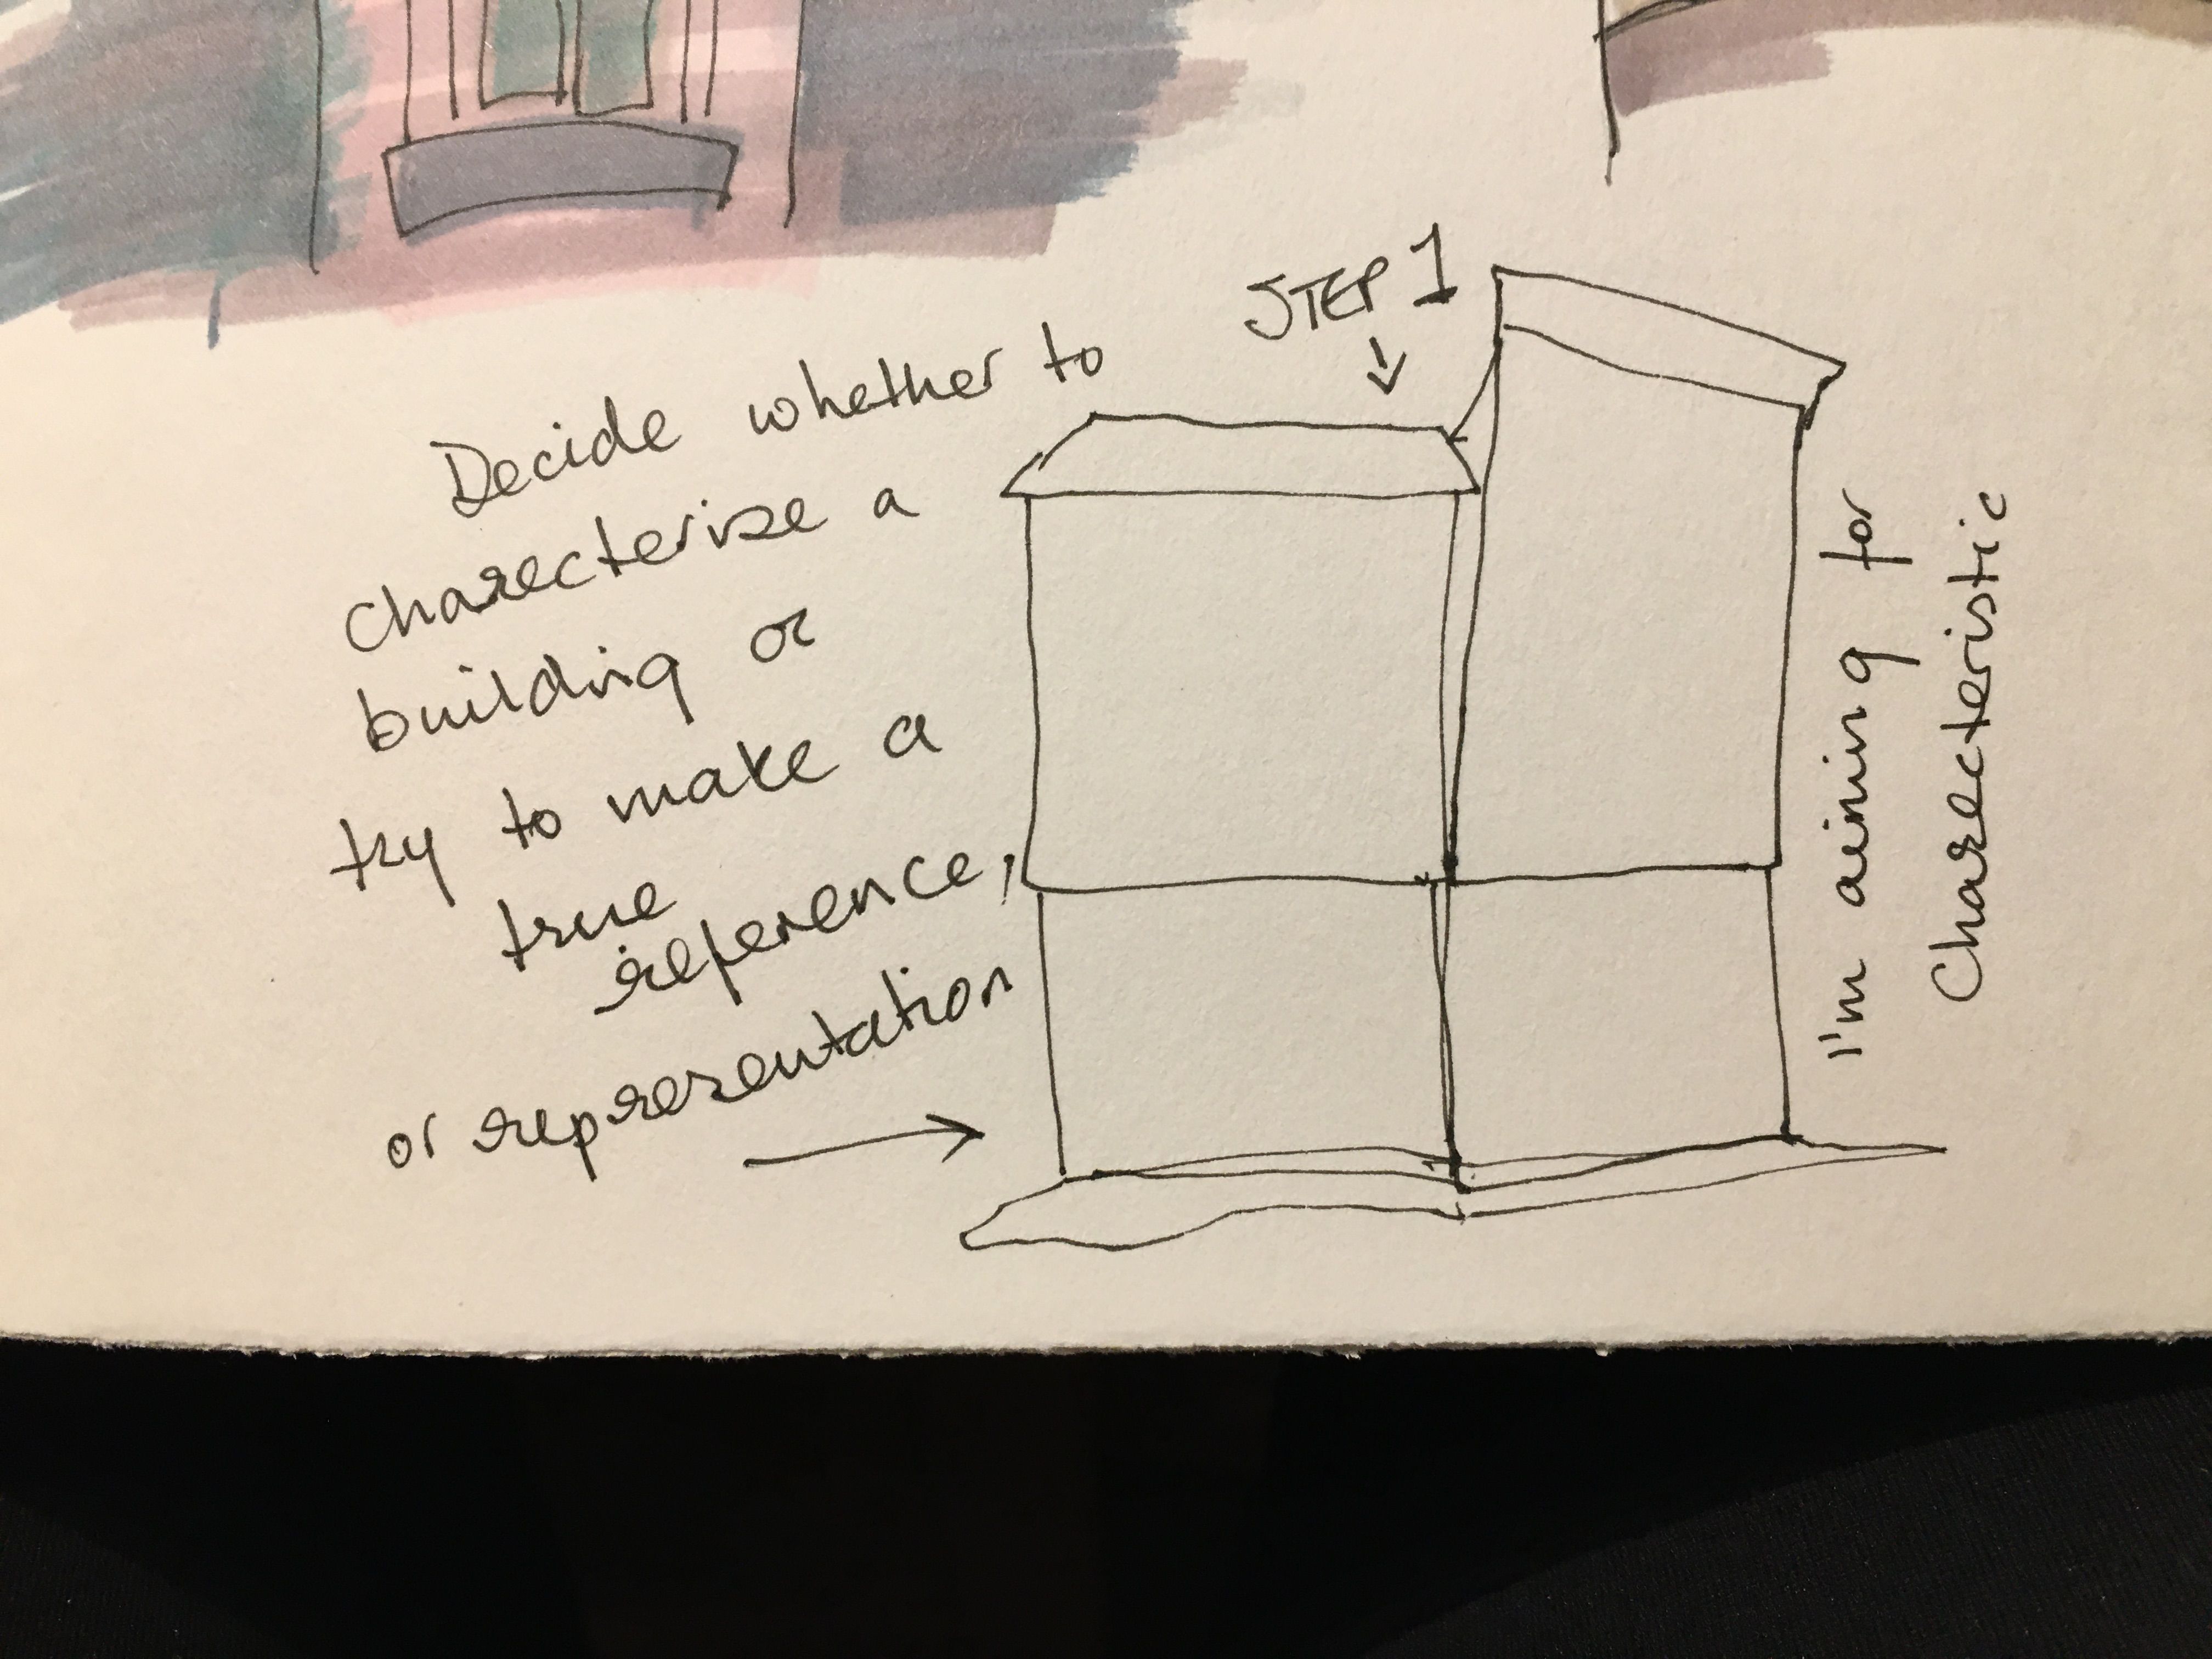 STEP 1
Decide whether to
charecterize a
building or
try to make a
true
reference,
or representation
I'm aiming for
Charecteristic